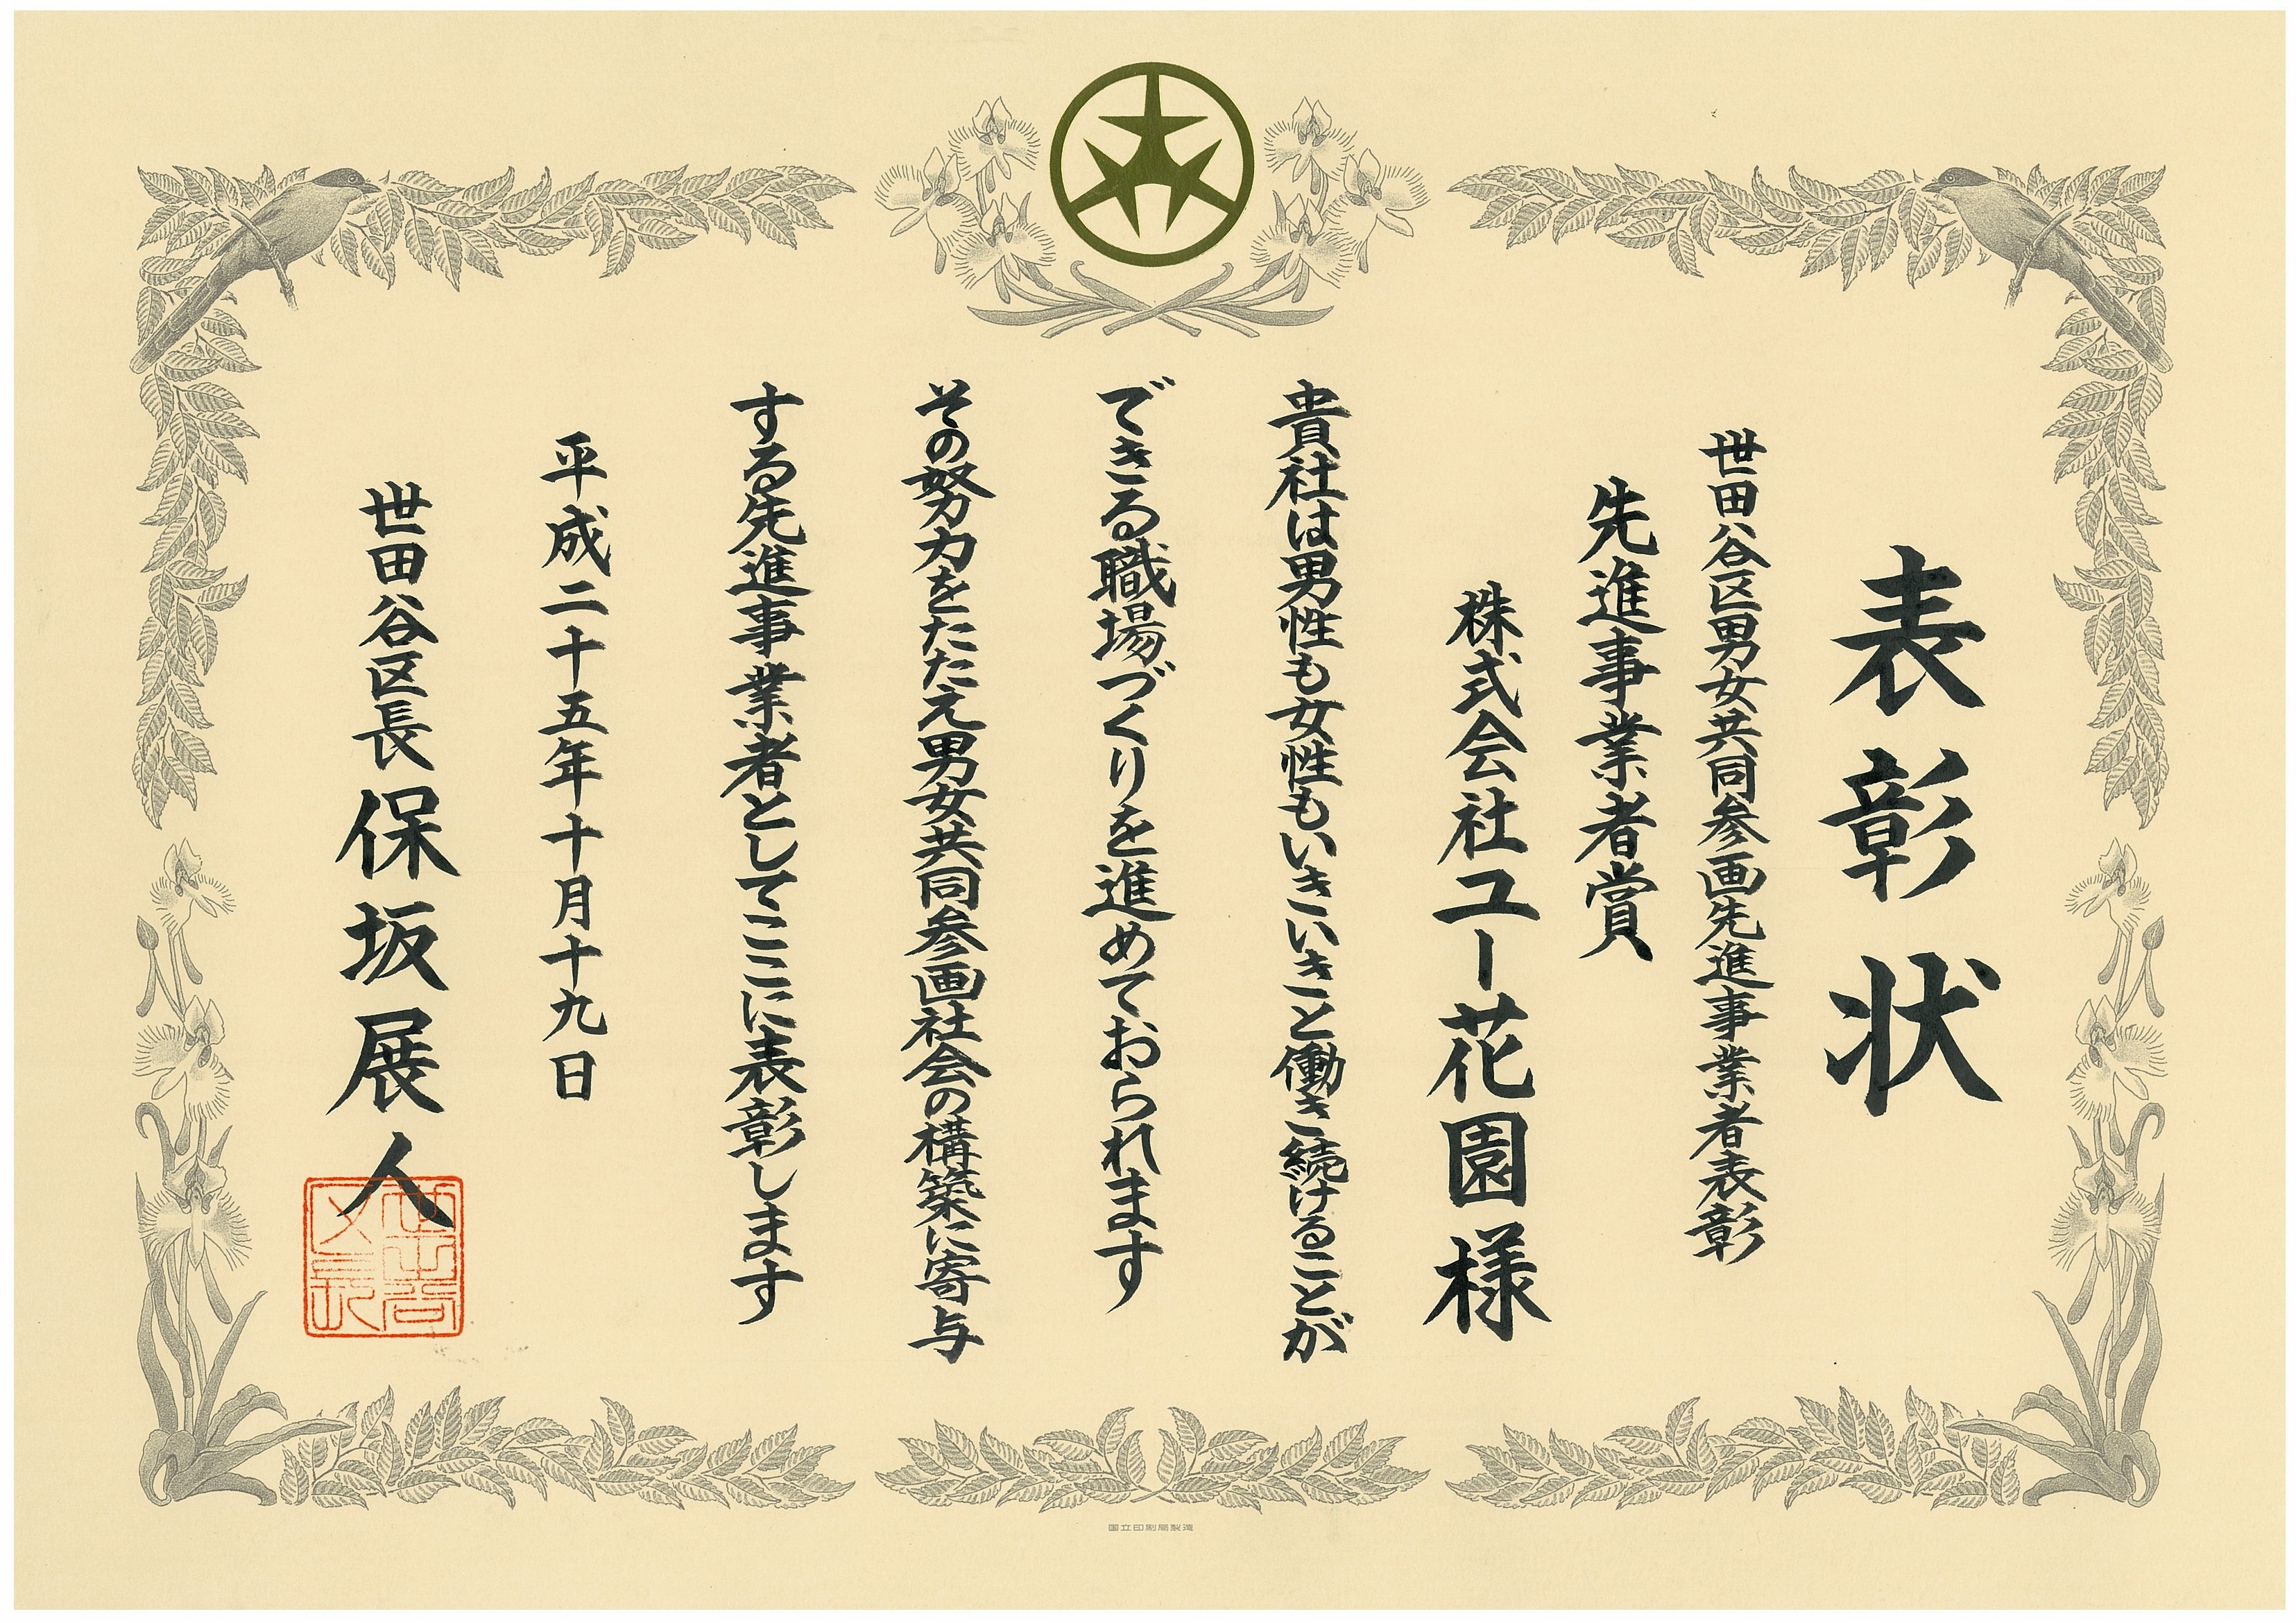 表彰状
世田谷区男女共同参画先進事業者表彰
先進事業者賞
株式会社ユー花園様
貴社は男性も女性もいきいきと働き続けることが
できる職場づくりを進めておられます
その努力をたたえ男女共同参画社会の構築に寄与
する先進事業者としてここに表彰します
平成二十五年十月十九日
世田谷区長保坂展人
世田谷区長
国立印刷局製造